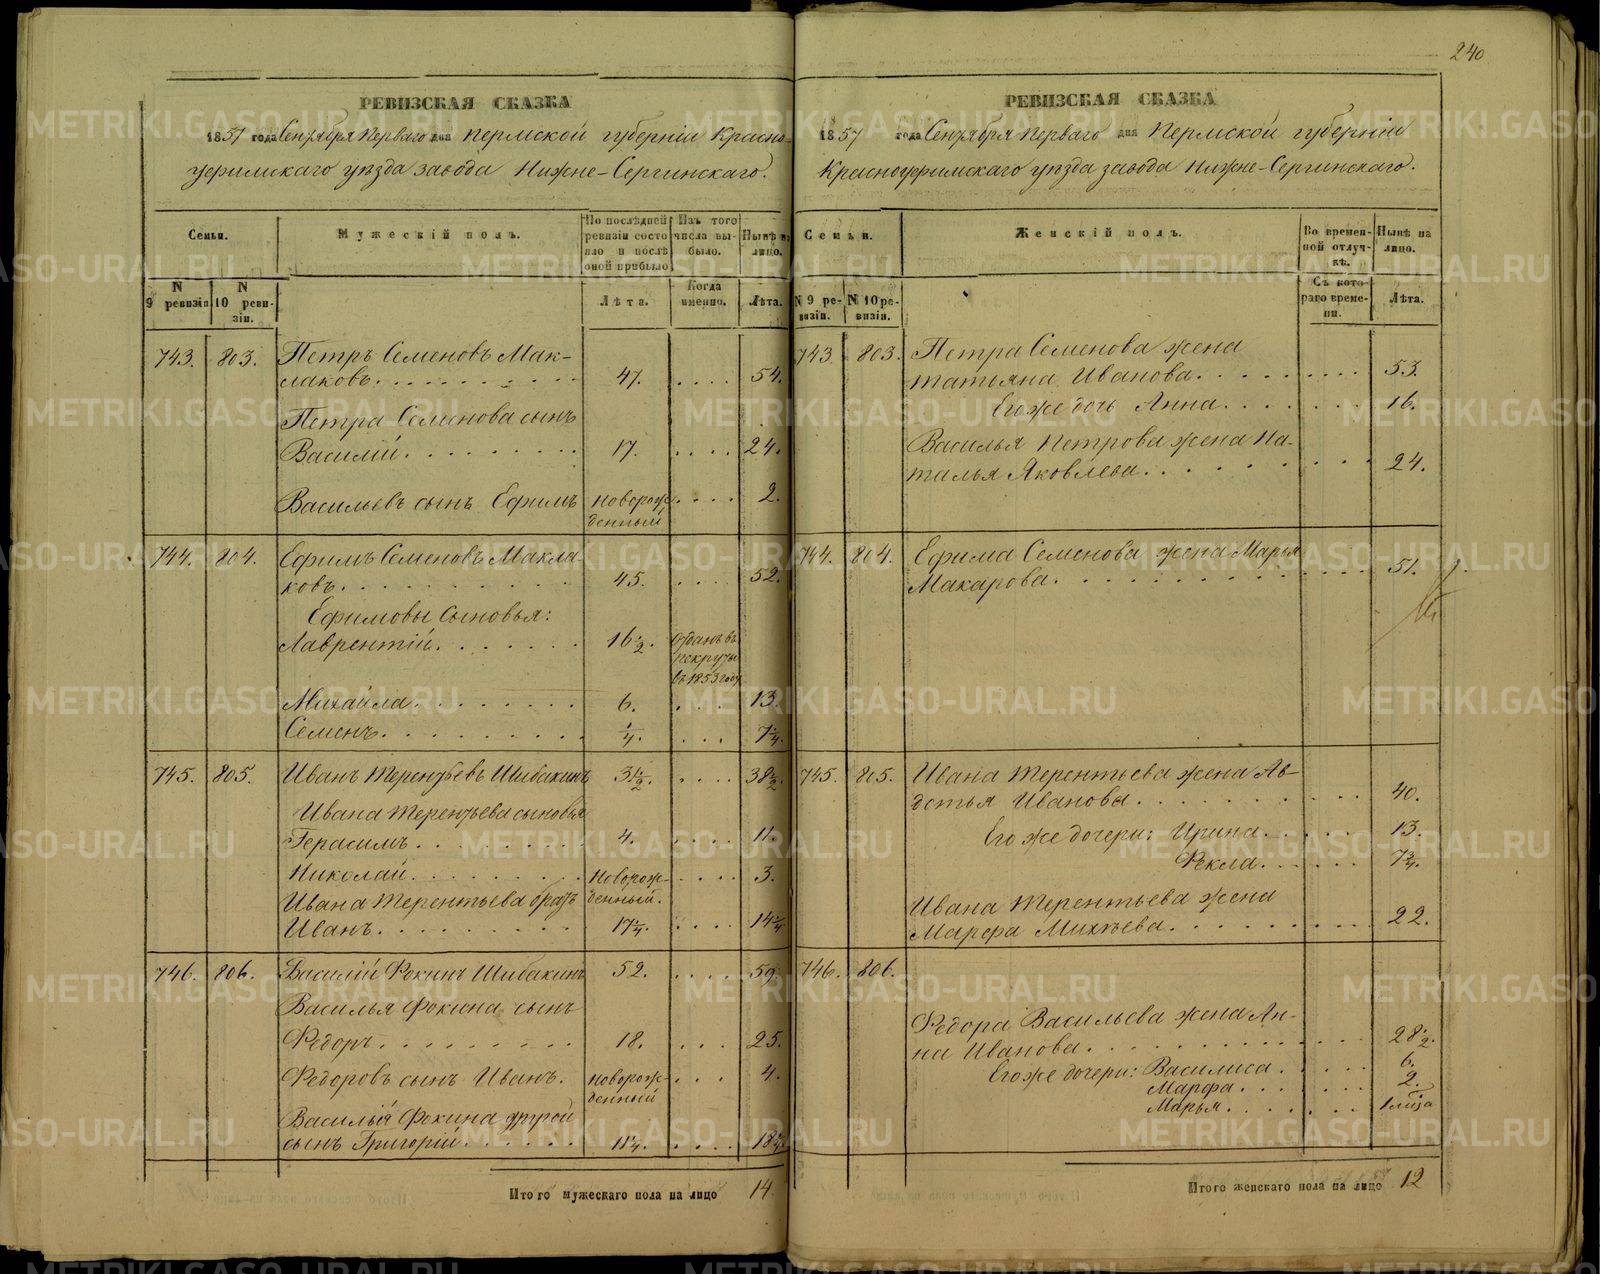 240
РЕВИЗСКАЯ СКАЗКА
1857 года Сентября Перваго дня Пермской губерніи Красно-
уфимскаго уѣзда завода Нижне-Сергинскаго.
Семьи.
Мужескій полъ.
По послѣдней ревизіи состояло и послѣ оной прибыло
Изъ того числа выбыло.
Нынѣ на лицо.
N 9 ревизіи
N 10 ревизіи.
Лѣта.
Когда именно.
Лѣта.
743. 803. Петръ Семеновъ Мак-
лаковъ. 47. 54.
Петра Семенова сынъ
Василій. 17. 24.
Васильевъ сынъ Ефимъ новорож- 2.
денный
744. 804. Ефимъ Семеновъ Макла-
ковъ. 45. 52.
Ефимовы сыновья:
Лаврентій. 16 1/2. отданъ въ
рекруты
въ 1853 году
Михаила. 6. 13.
Семенъ. 1/4. 7 1/4.
745. 805. Иванъ Терентьевъ Шибакинъ 31 1/2. 38 1/2.
Ивана Терентьева сыновья
Герасимъ. 4. 11.
Николай. Новорож- 3.
Ивана Терентьева братъ денный.
Иванъ. 17 1/4. 14 1/4
746. 806. Василій Фокинъ Шибакинъ 52. 59.
Василья Фокина сынъ
Федоръ. 18. 25.
Федоровъ сынъ Иванъ. новорож- 4.
денный
Василья Фокина другой
сынъ Григорій. 11 1/4. 18 1/4
Итого мужескаго пола на лицо 14
РЕВИЗСКАЯ СКАЗКА
1857 года Сентября Перваго дня Пермской губерніи
Красноуфимскаго уѣзда завода Нижне-Сергинскаго.
Семьи.
Женскій полъ.
Во временной отлучкѣ.
Нынѣ на лицо.
N 9 ревизіи.
N 10 ревизіи.
Съ котораго времени.
Лѣта.
743 803. Петра Семенова жена
Татьяна Иванова. 53.
Его же дочь Анна. 16.
Василья Петрова жена На-
талья Яковлева. 24.
744. 804. Ефима Семенова жена Марья
Макарова. 51.
745. 805. Ивана Терентьева жена Ав-
дотья Иванова. 40.
Его же дочери: Ирина. 13.
Фекла. 7 3/4.
Ивана Терентьева жена
Марфа Михѣева. 22.
746. 806.
Федора Васильева жена Ан-
на Иванова. 28 1/2.
Его же дочери: Василиса. 6.
Марфа. 2.
Марья. 1 мѣсяца
Итого женскаго пола на лицо 12
METRIKI.GASO-URAL.RU